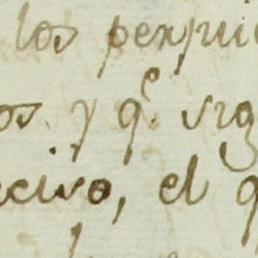 los perjui
os y q.e sig
ecivo, el q